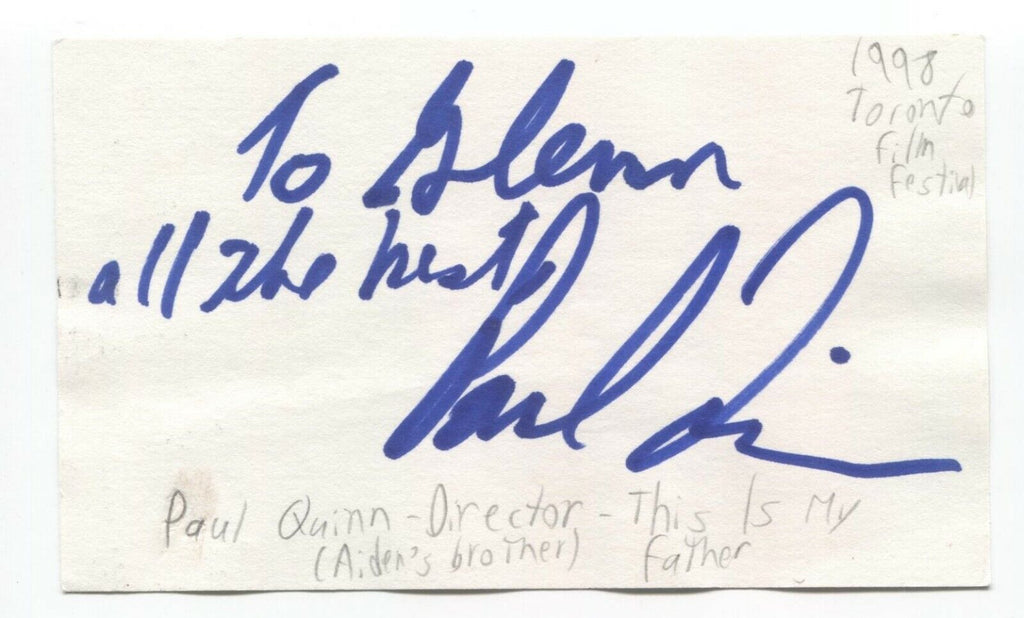 1998
Toronto
Film
Festival
To Glenn
all the best,
Paul Quinn
Paul Quinn - Director - This Is My
(Aiden's brother) Father